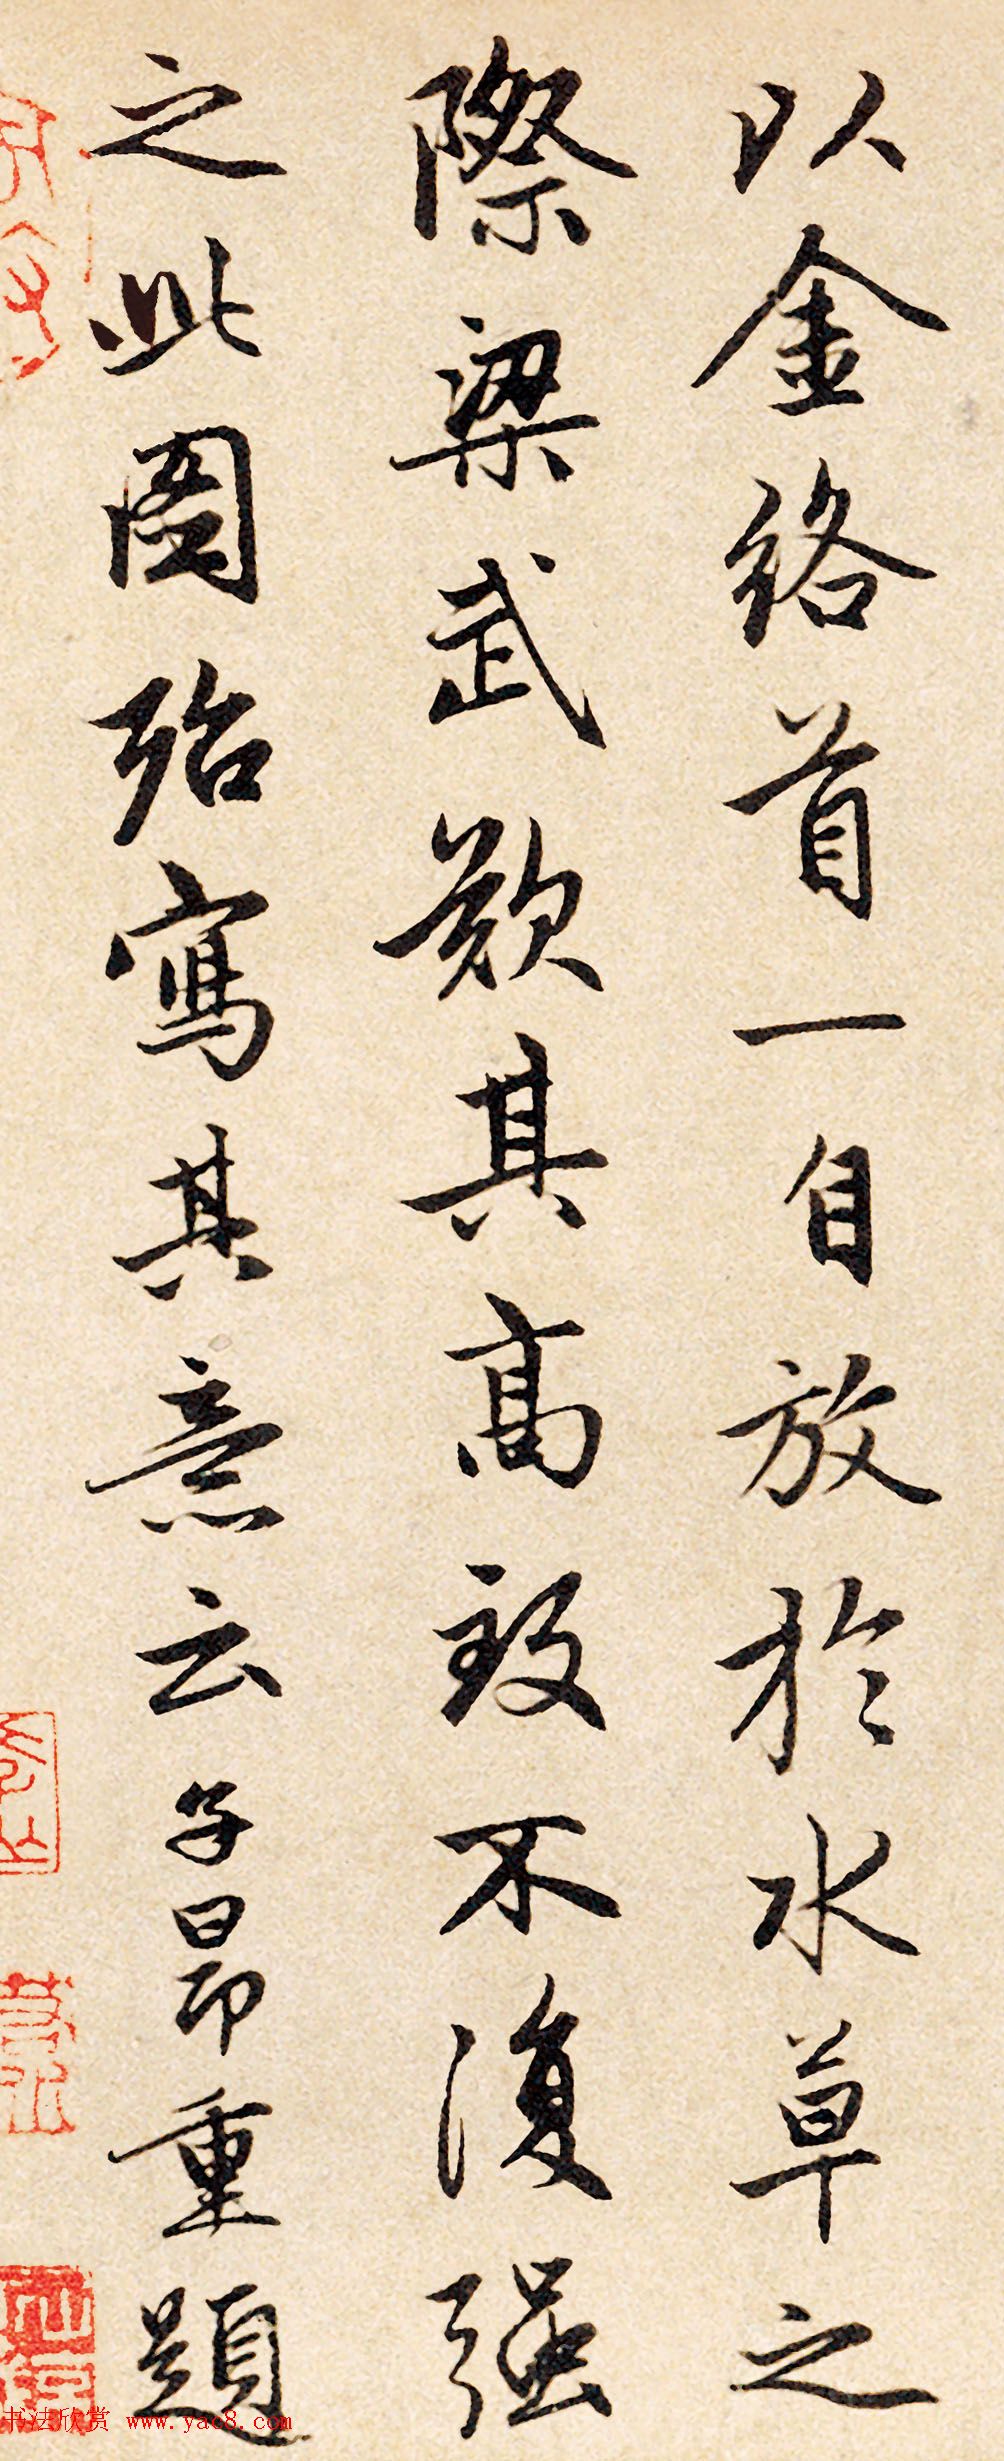 以金络首一自放於水草之
際梁武歎其高致不復强
之此圖殆寫其意云子昂重題
书法欣赏 www.yac8.com